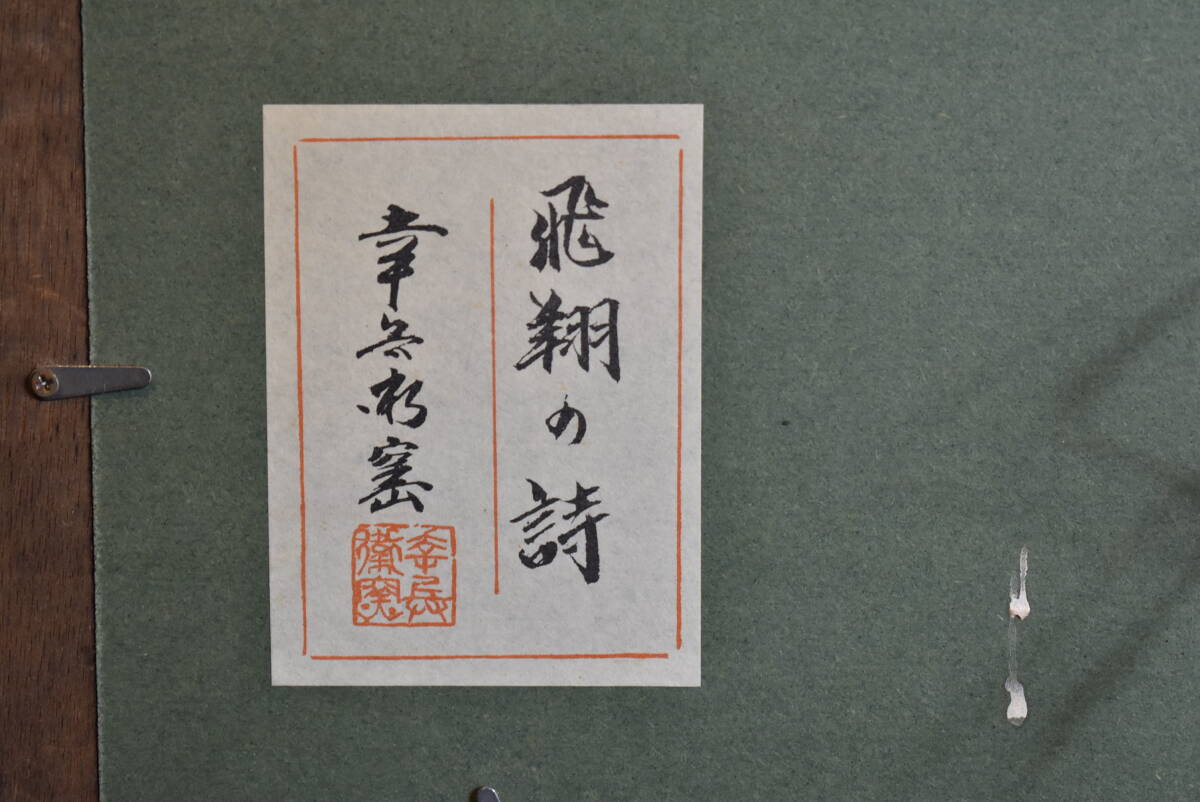 飛翔の詩
幸兵衛窯
幸兵衛窯